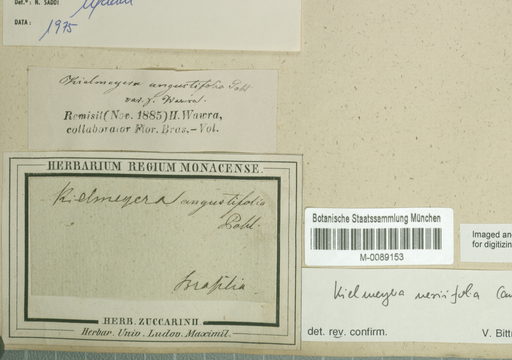 Det.: N. SADDI
DATA:
1975
Kielmeyera angustifolia Pohl
var. γ. Wawra.
Remisit (Nov. 1885) H. Wawra,
collaborator Flor. Bras. – Vol.
HERBARIUM REGIUM MONACENSE.
Kielmeyera angustifolia
Pohl.
Brasilia.
HERB. ZUCCARINII
Herbar. Univ. Ludov. Maximil.
Botanische Staatssammlung München
M-0089153
Imaged an
for digitizin
Kielmeyera neriifolia Cam
det. rev. confirm.
V. Bitt